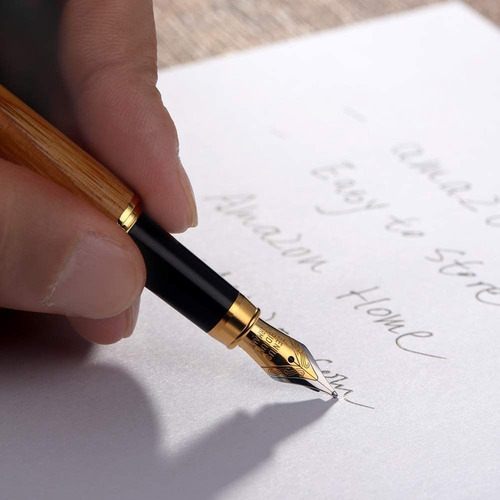 amazo
Easy to store
Amazon Home
com